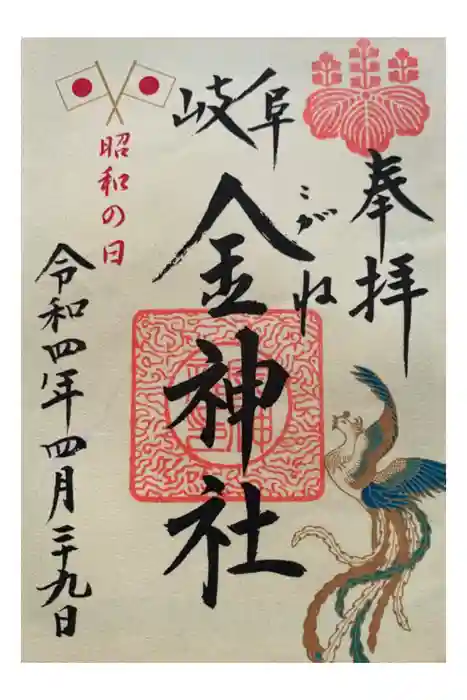 奉拝
岐阜
こがね
金神社
昭和の日
令和四年四月二十九日